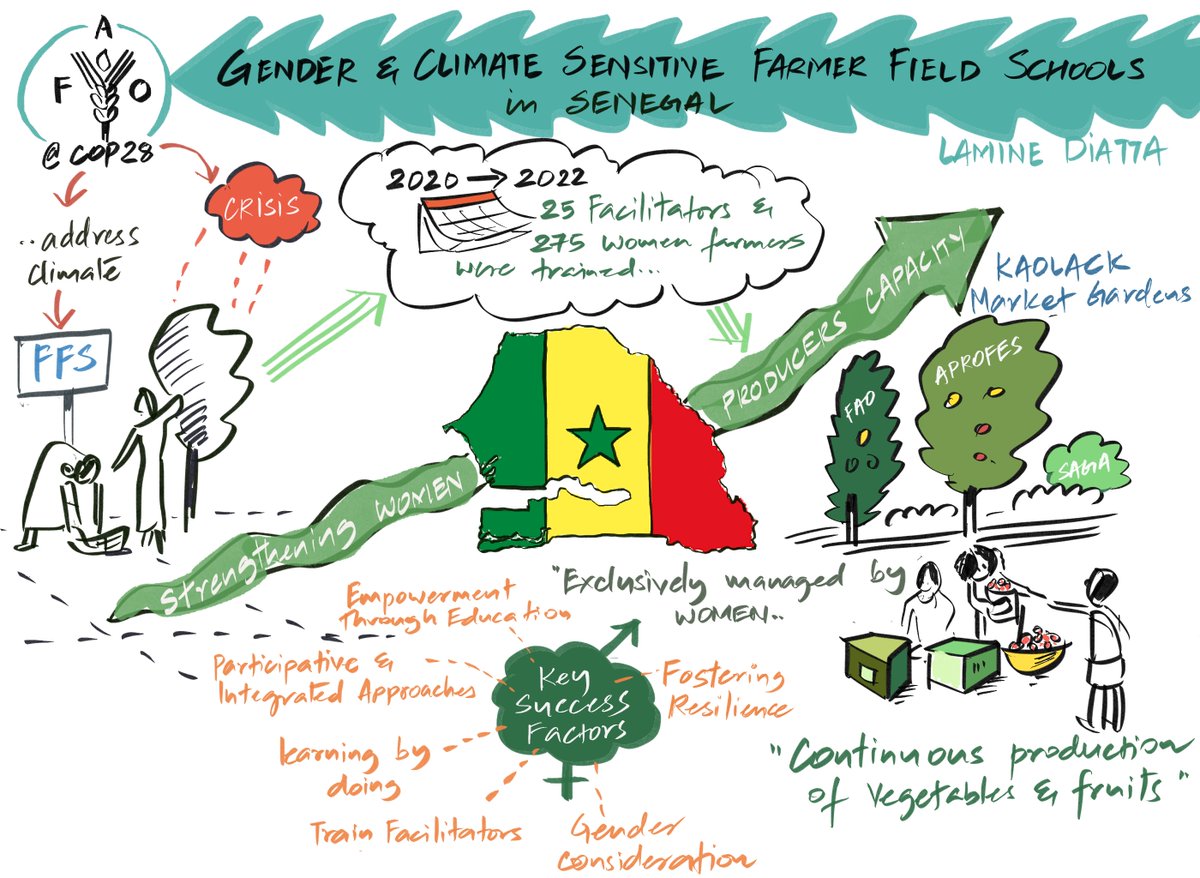 GENDER & CLIMATE SENSITIVE FARMER FIELD SCHOOLS
in SENEGAL
LAMINE DIATTA
A
F O
@ COP28
CRISIS
..address
climate
FFS
2020 → 2022
25 Facilitators &
275 women farmers
were trained...
Strengthening WOMEN
PRODUCERS CAPACITY
KAOLACK
Market Gardens
FAO
APROFES
SAGA
"Exclusively managed by
WOMEN..
Key
Success
Factors
Empowerment
Through Education
Participative &
Integrated Approaches
learning by
doing
Train Facilitators
Gender
consideration
Fostering
Resilience
"Continuous production
of vegetables & fruits"